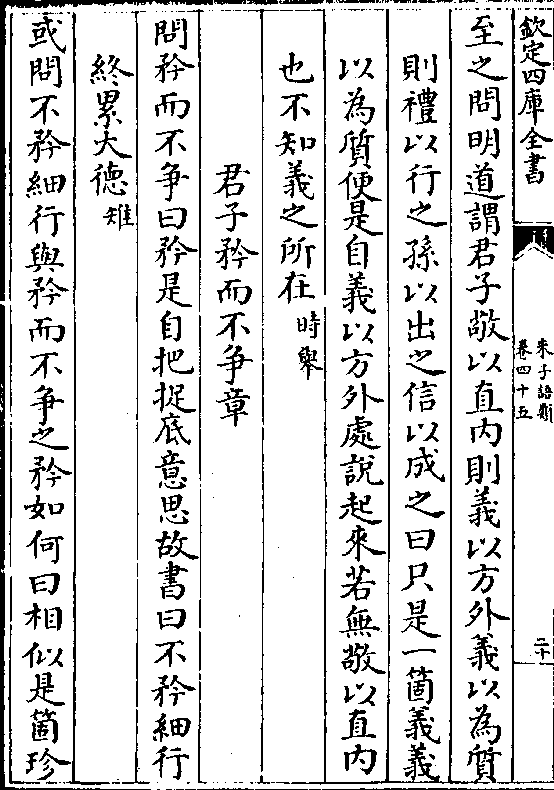 欽定四庫全書
朱子語類
卷四十五
二十
至之問明道謂君子敬以直内則義以方外義以為質
則禮以行之孫以出之信以成之曰只是一箇義義
以為質便是自義以方外處說起來若無敬以直内
也不知義之所在時舉
君子矜而不爭章
問矜而不爭曰矜是自把捉底意思故書曰不矜細行
終累大德雉
或問不矜細行與矜而不爭之矜如何曰相似是箇珍